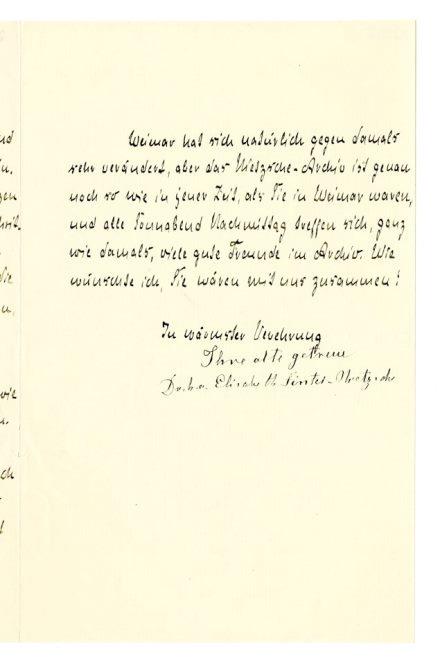 nd
Weimar hat sich natürlich gegen damals
sehr verändert, aber das Nietzsche-Archiv ist genau
noch so wie in jener Zeit, als Sie in Weimar waren,
und alle Sonnabend Nachmittag treffen sich, ganz
wie damals, viele gute Freunde im Archiv. Wie
wünschte ich, Sie wären mit uns zusammen!
In wärmster Verehrung
Ihre alte getreue
Dr. h. c. Elisabeth Förster-Nietzsche